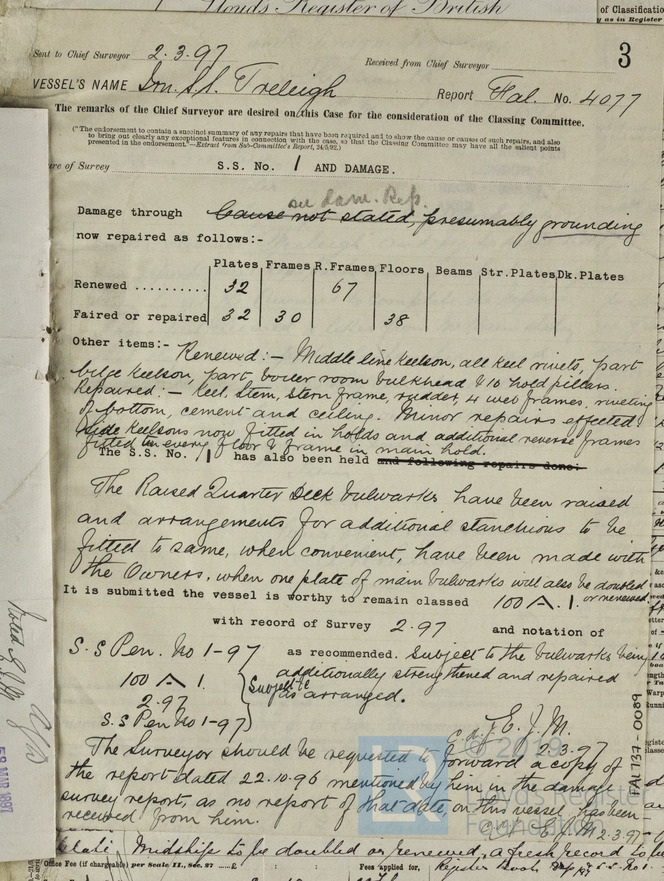 Lloyds Register of British
of Classification
y as in Register
Sent to Chief Surveyor 2.3.97 Received from Chief Surveyor
3
VESSEL'S NAME Irn. S.S. Treleigh Report Fal. No. 4077
The remarks of the Chief Surveyor are desired on this Case for the consideration of the Classing Committee.
("The endorsement to contain a succinct summary of any repairs that have been required and to show the cause or causes of such repairs, and also
to bring out clearly any exceptional features in connection with the case, so that the Classing Committee may have all the salient points
presented in the endorsement."—Extract from Sub-Committee's Report, 24/5/92.)
re of Survey S.S. No. 1 AND DAMAGE.
see dam. Rep.
Damage through Cause not stated, presumably grounding
now repaired as follows:-
Plates Frames R.Frames Floors Beams Str.Plates Dk.Plates
Renewed .......... 32 67
Faired or repaired 32 30 38
Other items:- Renewed:- Middle line keelson, all keel rivets, part
bilge keelson, part boiler room bulkhead & 10 hold pillars.
Repaired:- Keel, Stem, Stern frame, rudder, 4 web frames, riveting
of bottom, cement and ceiling. Minor repairs effected
Side keelsons now fitted in holds and additional reverse frames
fitted in every floor & frame in main hold.
The S.S. No. 1 has also been held and following repairs done:
The Raised Quarter Deck bulwarks have been raised
and arrangements for additional stanchions to be
fitted to same, when convenient, have been made with
the Owners, when one plate of main bulwarks will also be doubled
or renewed.
It is submitted the vessel is worthy to remain classed 100 A.1.
with record of Survey 2.97 and notation of
S.S Pen. No 1-97 as recommended. Subject to the bulwarks being
additionally strengthened and repaired
as arranged.
100 A 1.
2.97
S.S Pen No 1-97
Subject &c
E.J.M.
2.3.97
The Surveyor should be requested to forward a copy of
the report dated 22.10.96 mentioned by him in the damage
survey report, as no report of that date, on this vessel has been
received from him. 2.3.97
© 2019
Lloyd's Register
Foundation
FAL 737-0089
Midships to be doubled or renewed, a fresh record to
Office Fee (if chargeable) per Scale II., Sec. 27 .....£ Fees applied for,